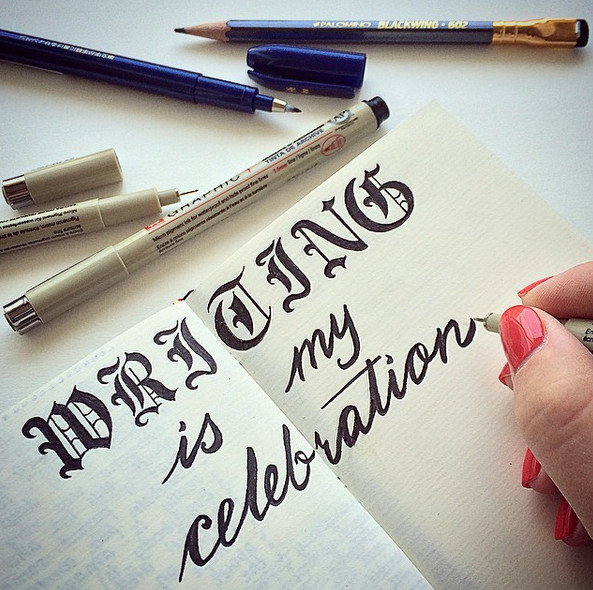 PALOMINO BLACKWING • 602
GRAPHIC 1
TINTA DE ARCHIVE
WRITING
is my
celebration